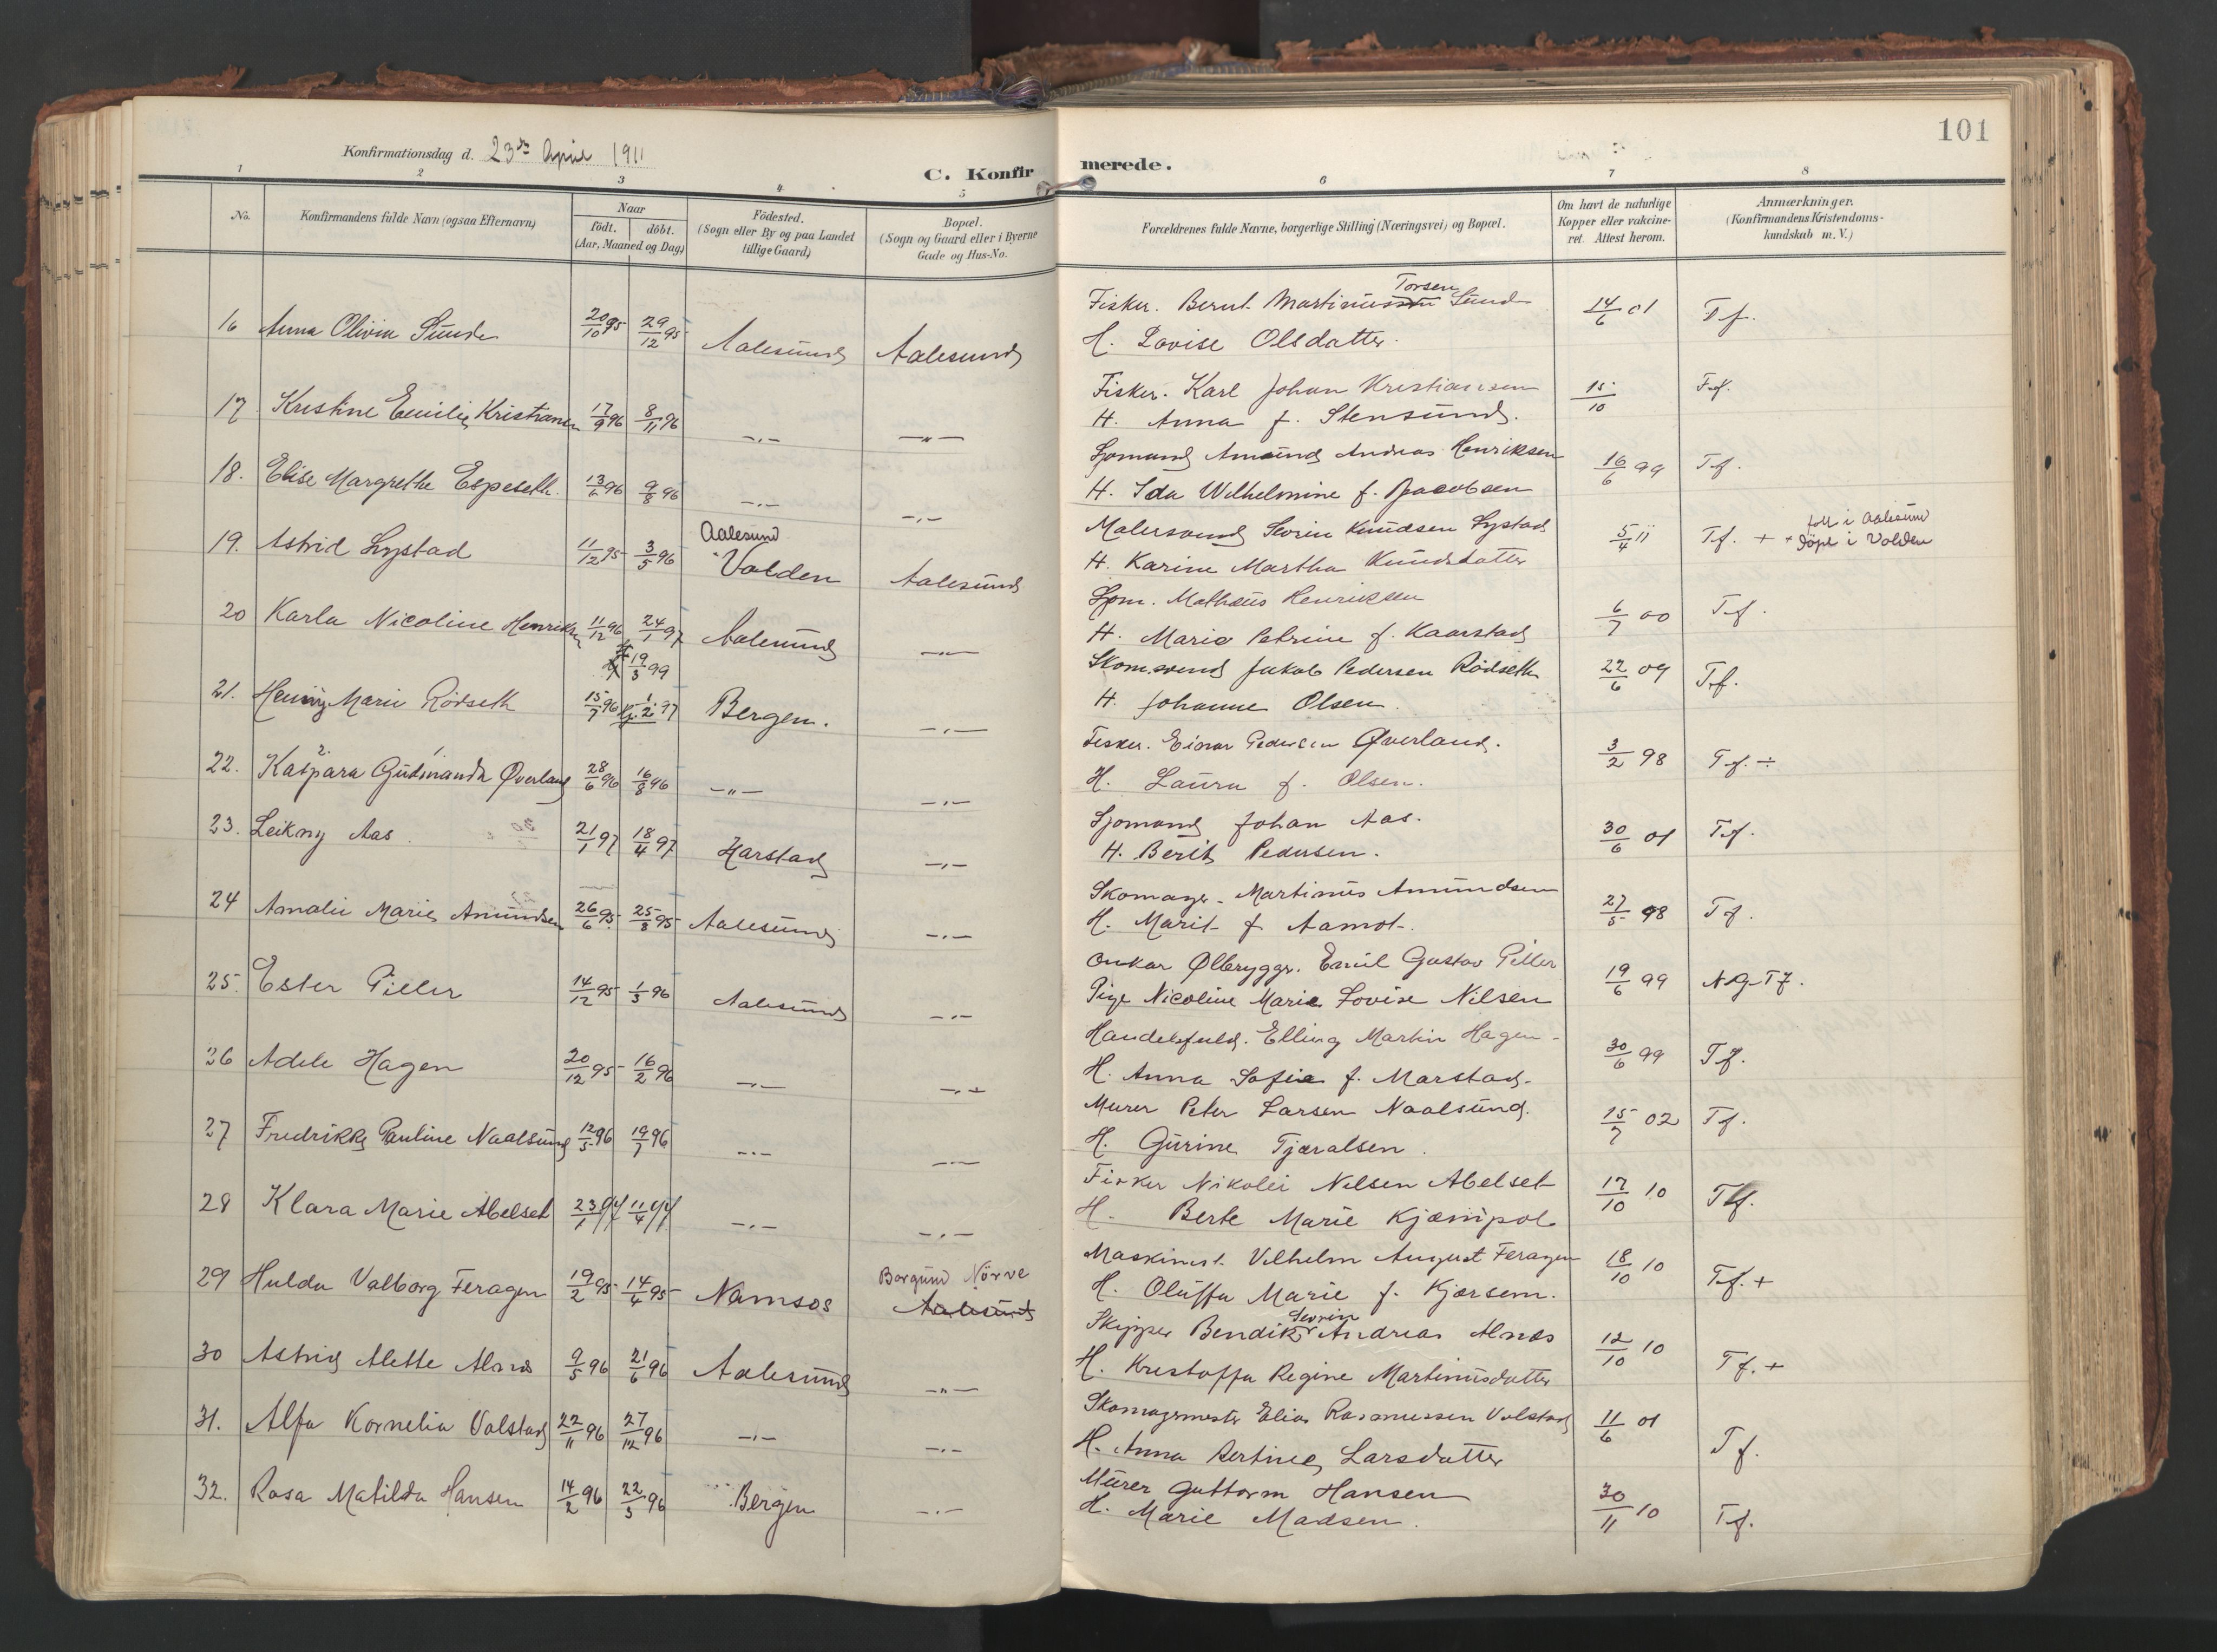 101
Konfirmationsdag d. 23de April 1911
C. Konfirmerede.
1 2 3 4 5 6 7 8
No.
Konfirmandens fulde Navn (ogsaa Efternavn)
Naar
födt. döbt.
(Aar, Maaned og Dag)
Födested.
(Sogn eller By og paa Landet
tillige Gaard)
Bopæl.
(Sogn og Gaard eller i Byerne
Gade og Hus-No.
Forældrenes fulde Navne, borgerlige Stilling (Næringsvei) og Bopæl.
Om havt de naturlige
Kopper eller vakcine-
ret. Attest herom.
Anmærkninger.
(Konfirmandens Kristendoms-
kundskab m.V.)
16 Anna Olivia Sunde 20/10 95 29/12 95 Aalesund Aalesund Fisker. Bernt Martinussen Torsen Sund 14/6 01 T.f.
H. Lovise Olsdatter.
17 Kristine Emilie Kristiansen 17/9 96 8/11 96 -"- -"- Fisker. Karl Johan Kristiansen 15/10 T.f.
H. Anna f. Stensund.
18. Elise Margrethe Espeseth. 13/6 96 9/8 96 -"- -"- Sjömand Amund Andreas Henriksen 16/6 99 T.f.
H. Ida Wilhelmine f. Jacobsen
19. Astrid Lystad 11/12 95 3/5 96 Aalesund Volden Aalesund Malersvend Sevrin Knudsen Lystad 5/4 11 T.f. + + födt i Aalesund
döpt i Volden
H. Karine Martha Knudsdatter
20 Karla Nicoline Henriksen 11/12 96 24/1 97 Aalesund -"- Sjöm. Mathæus Henriksen 6/7 00 T.f.
H. Marie Petrine f. Kaarstad
19/3 99
21. Henny Marie Rödseth 15/7 96 1/2 97 Bergen. -"- Skom.svend Jakob Pedersen Rödseth 22/6 09 T.f.
H. Johanne Olsen.
2. 1.
22. Kaspara Gudmanda Øverland 28/6 96 16/8 96 -"- -"- Fisker. Einar Pedersen Øverland. 3/2 98 T.f. ÷
H. Laura f. Olsen.
23. Leikny Aas. 21/1 97 18/4 97 Harstad -"- Sjömand Johan Aas. 30/6 01 T.f.
H. Berit Pedersen.
24 Amalie Marie Amundsen 26/6 95 25/8 95 Aalesund -"- Skomager. Martinus Amundsen 27/5 98 T.f.
H. Marit f. Aamot.
25. Ester Piller 14/12 95 1/3 96 Aalesund -"- Ølbryggr. Emil Gustav Piller 19/6 99 T.f.
Pige Nicoline Marie Lovise Nilsen
26 Adele Hagen 20/12 95 16/2 96 -"- -"- Handelsfuldm. Elling Martin Hagen 30/6 99 T.f.
H. Anna Sofie f. Marstad.
27 Fredrikke Pauline Naalsund 12/5 96 19/7 96 -"- -"- Murer Peter Larsen Naalsund. 15/7 02 T.f.
H. Gurine Tjæralsen.
28 Klara Marie Abelset 23/1 97 11/4 97 -"- -"- Fisker Nikolei Nilsen Abelset 17/10 10 T.f.
H. Berte Marie Kjæmpol
29 Hulda Valborg Feragen 19/2 95 14/4 95 Namsos Borgund Nörve Aalesund Maskinist. Vilhelm August Feragen 18/10 10 T.f. +
H. Oluffa Marie f. Kjørsem.
30 Astrid Alette Alnæs 9/5 96 21/6 96 Aalesund -"- Skipper Bendik Sevrin Andreas Alnæs 12/10 10 T.f. +
H. Kristoffa Regine Martinusdatter
31. Alfa Kornelia Valstad 22/11 96 27/12 96 -"- -"- Skomagermester Elias Rasmussen Valstad 11/6 01 T.f.
H. Anna Bertine Larsdatter
32. Rosa Matilda Hansen 14/2 96 22/3 96 Bergen -"- Murer Guttorm Hansen 30/11 10 T.f.
H. Marie Madsen.